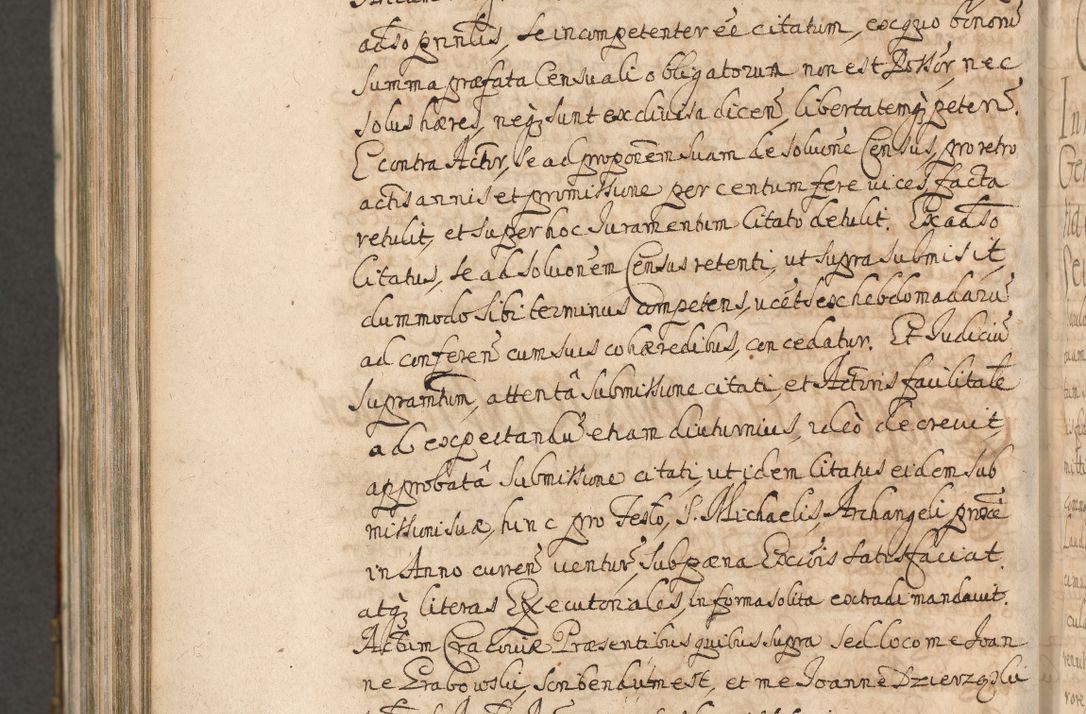 adso pñntis, se incompetenter eẽ citatum, ex quo binom̃
summa præfata Censuali obligatorum non est Possor, nec
solus hæres, neq; sunt ex divisa dicen̄, libertatemq; petern̄.
E contra Actor, se ad propoẽm suam de solvone Census, pro retro
actis annis et promissione per centum fere vices facta
retulit, et super hoc Juramentum Citato detulit. Ex adso
Citatus, se ad solvonem Census retenti, ut supra submisit,
dummodo sibi terminus competens, ucẽt sex hebdomadarū
ad conferen̄ cum suis cohæredibus, concedatur. Et Judiciū
supramtum, attentâ submissione citati, et Actoris facilitate
ad expectandū etiam diuturnius, ideò decrevit,
approbatâ submissione citati, ut idem Citatus eidem sub
missioni suæ, hinc pro Festo, S. Michaelis, Archangeli, proxẽ
in Anno curren̄ ventur̄, sub pæna Excōis satisfaciat.
atq; literas Executoriales, in forma solita extradi mandavit.
Actum Cracoviæ Præsentibus quibus supra sed loco me Joan
ne Grabowski, scribendum est, et me Joanne Dzierzgski